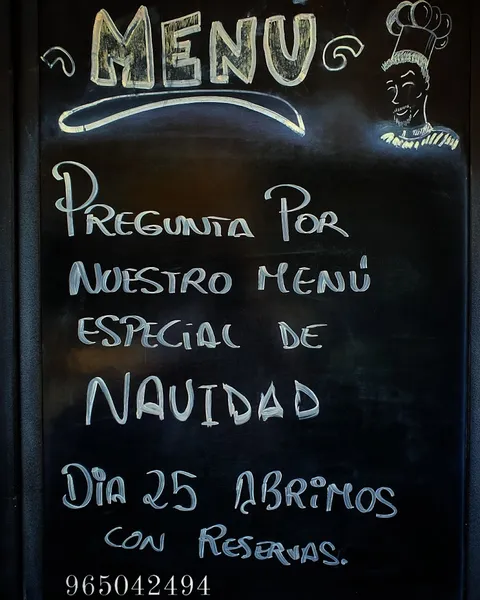 MENU
PREGUNTA POR
NUESTRO MENÚ
ESPECIAL DE
NAVIDAD
DIA 25 ABRIMOS
CON RESERVAS.
965042494